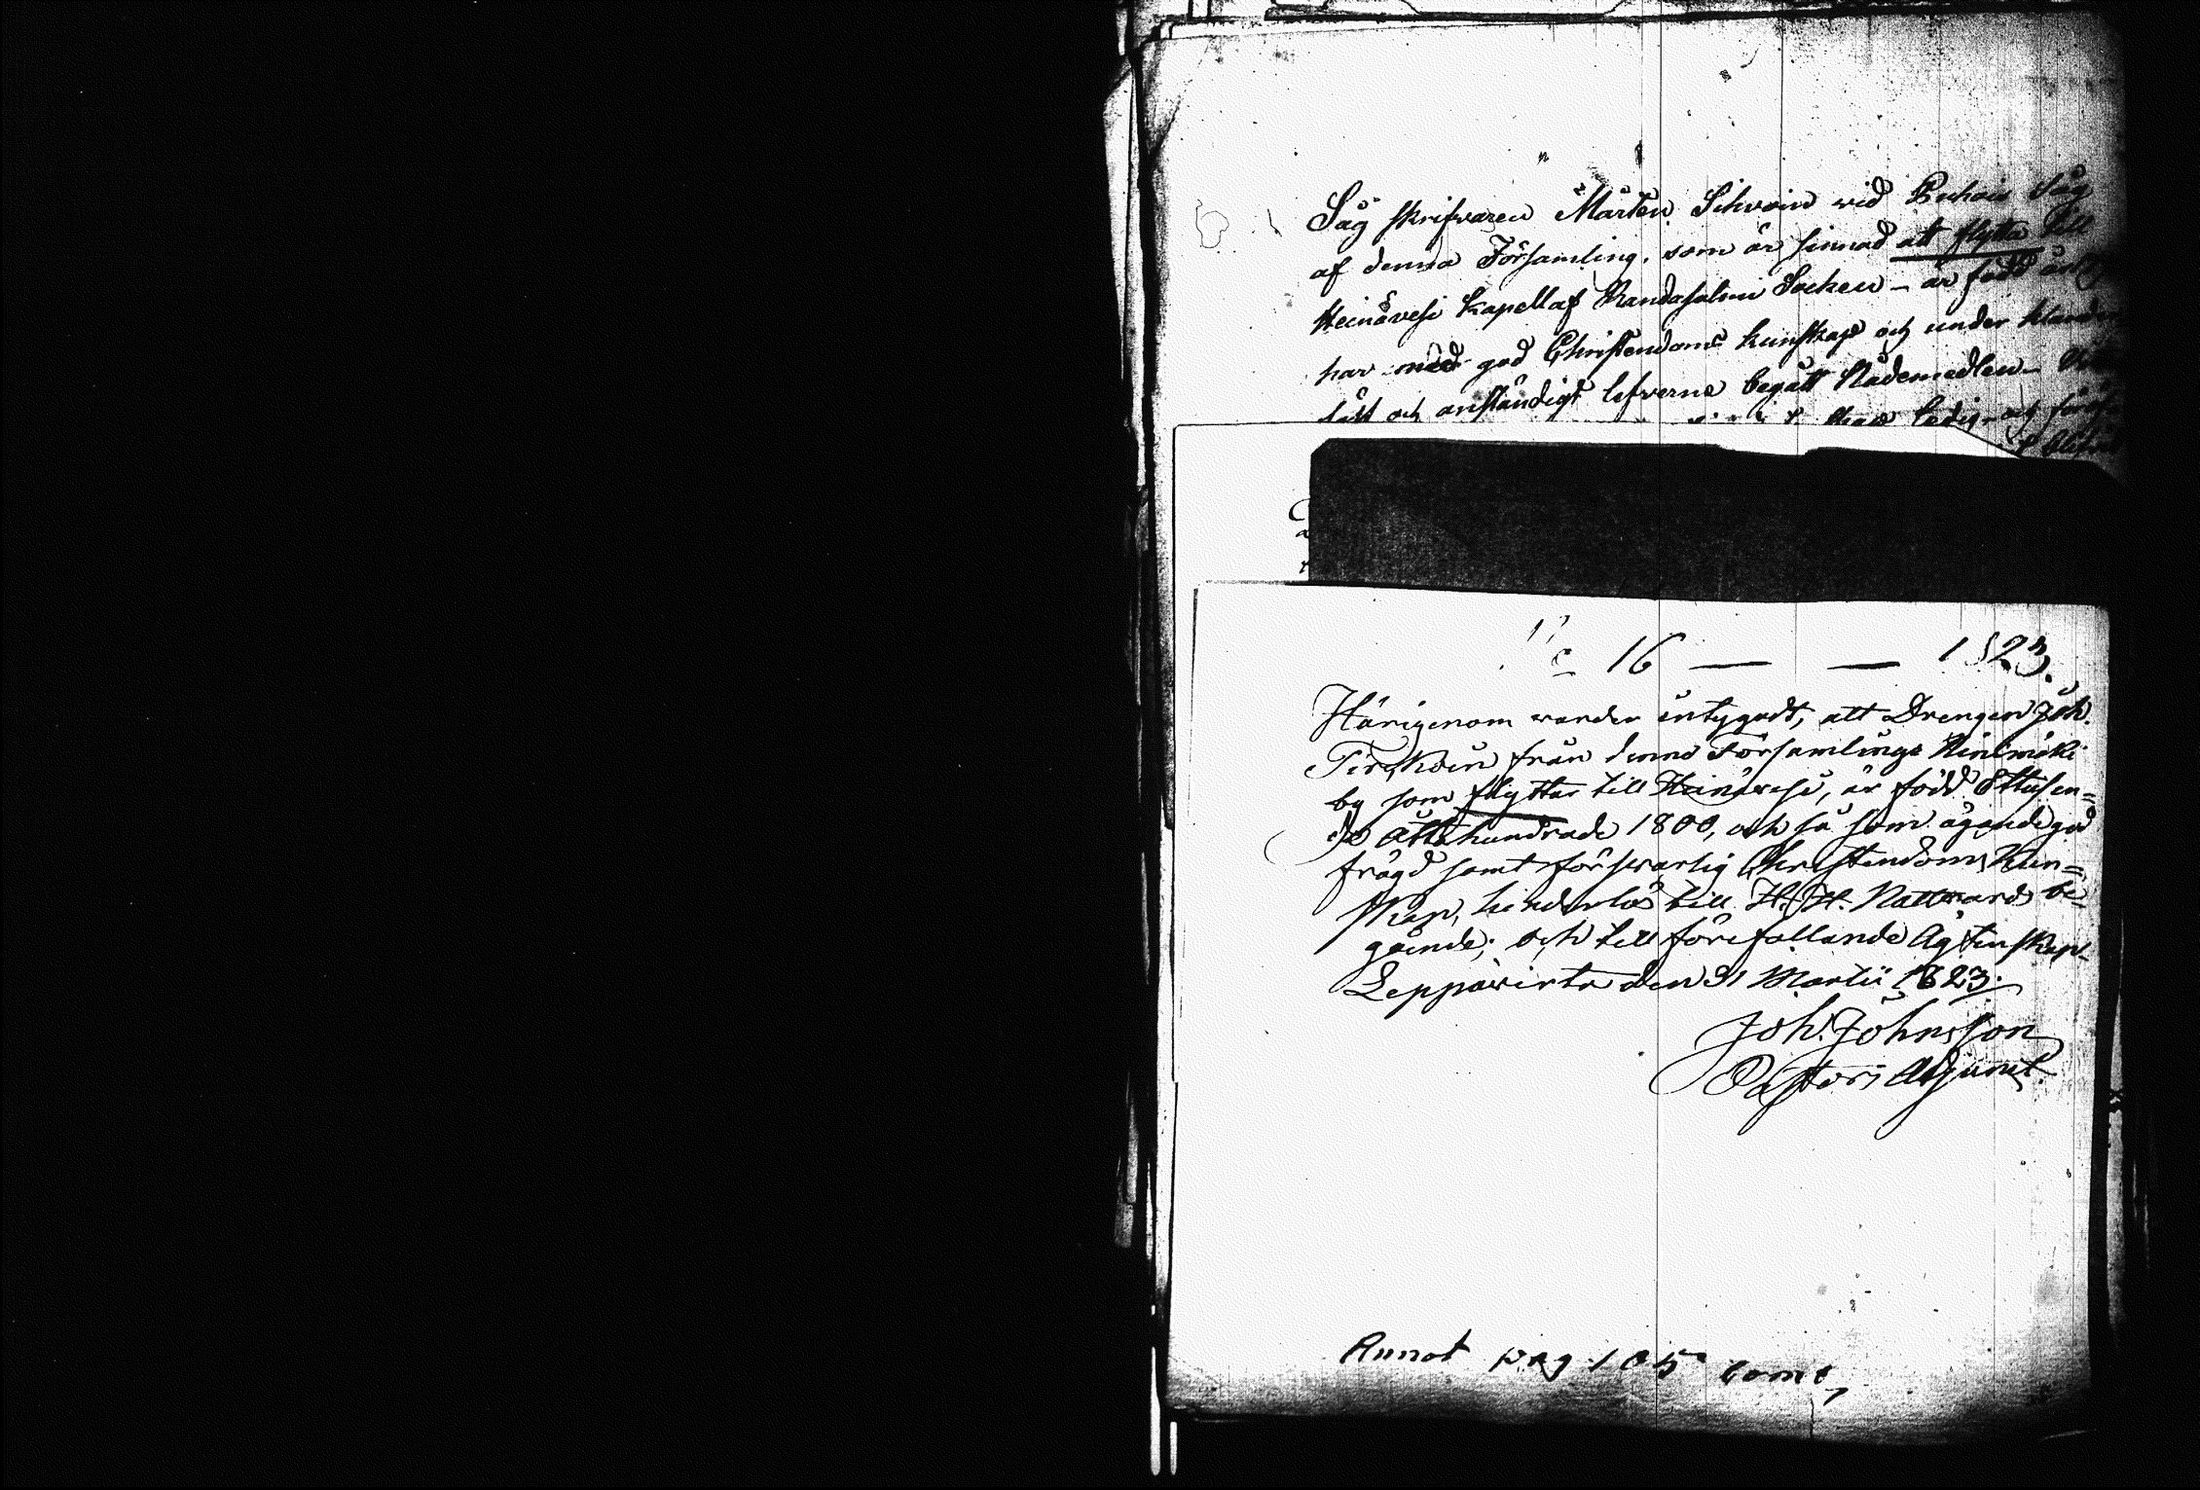 Såg skrifvaren Mårten Sihvoin wid Puhois Såg
af denna Församling, som är sinnad att flytta till
Heinävesi Kapell af Randasalmi Socken – är född år
har med god Christendoms kunskap och under klander
fått och anständigt lefverne begått Nådemedlen –
ledig – och
N:o 16 — — 1823.
Härigenom warder intygadt, att Drengen Joh.
Tirkkoin från denna Församlings Kinimäki
by som flyttar till Heinävesi, är född Ettusen=
de Åttahundrade 1800, och så som ägande god
frägd samt förswarlig Christendoms Kun=
skap, hinderlös till H. H. Nattward be=
gående; och till förefallande Ägtenskap.
Leppävirta den 31 Martii 1823.
Joh. Johnsson
Pastors Adjunct.
Annot pag 105